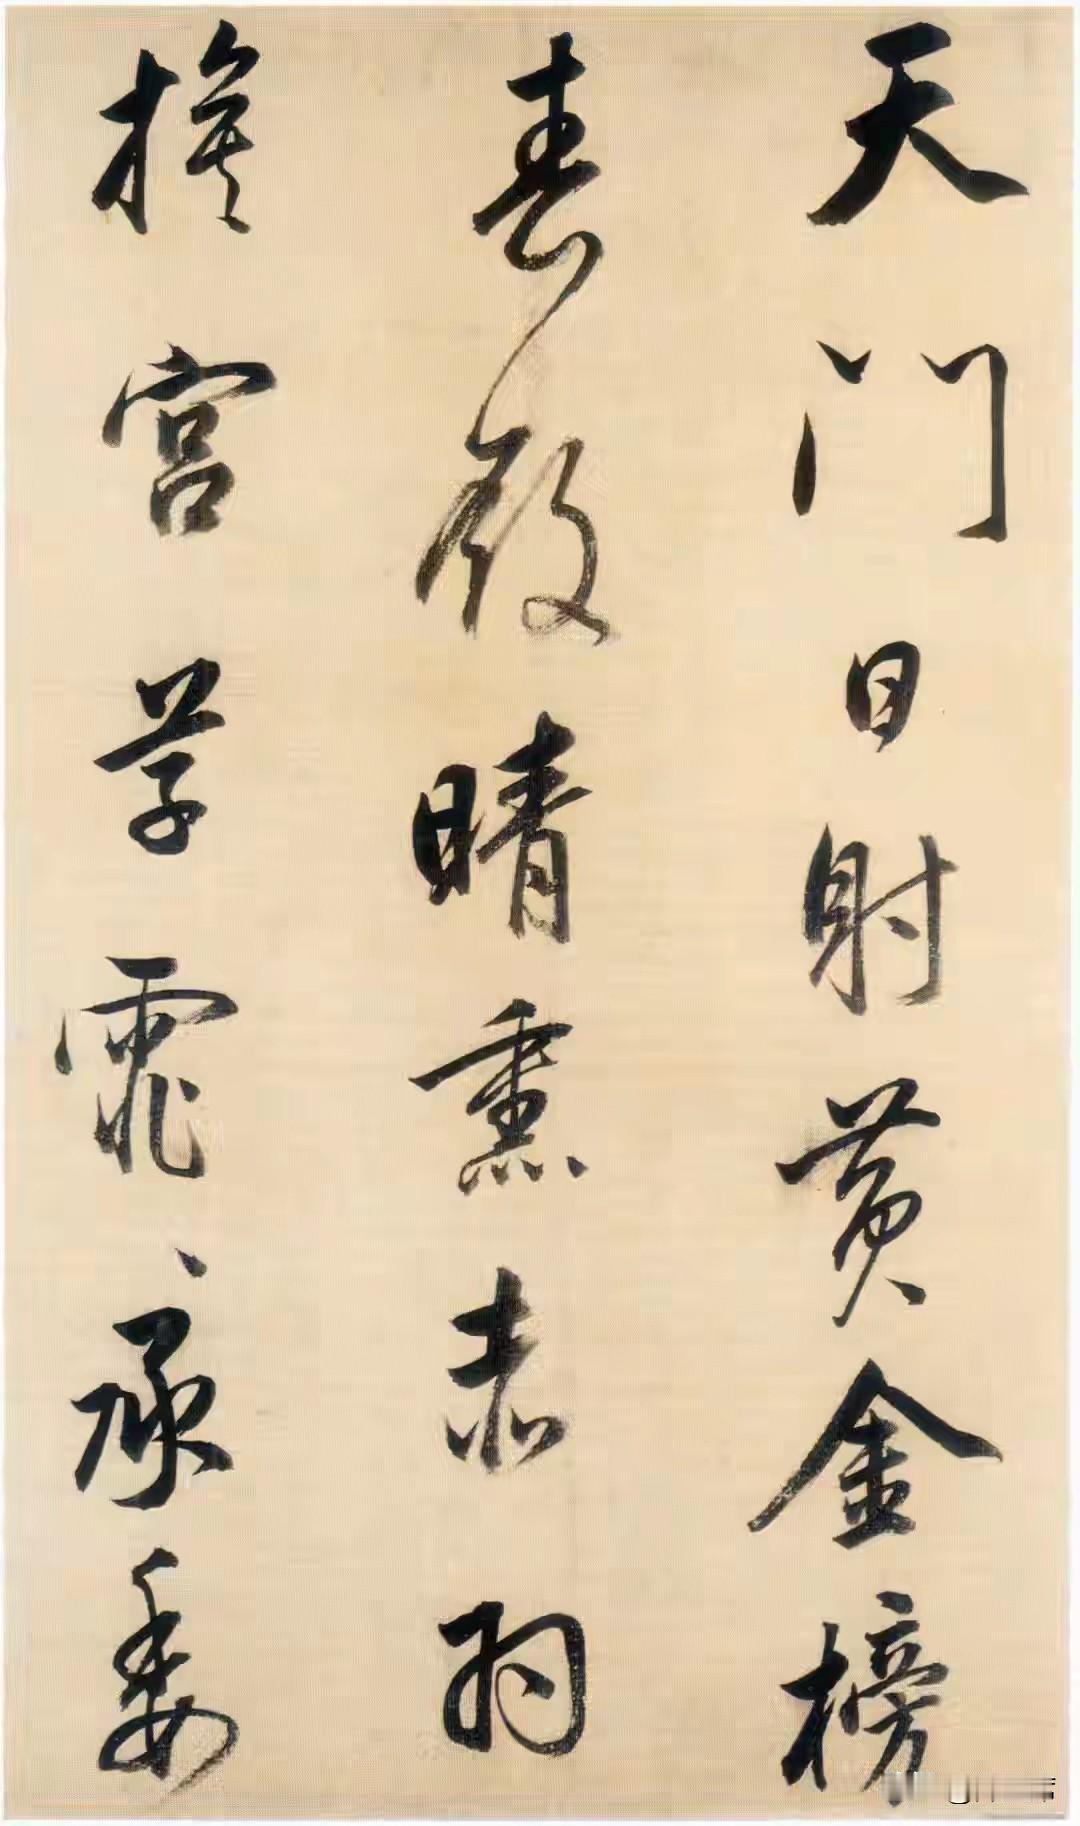 天門日射黄金榜
春殿晴熏赤羽
旗宮草霏〻承委